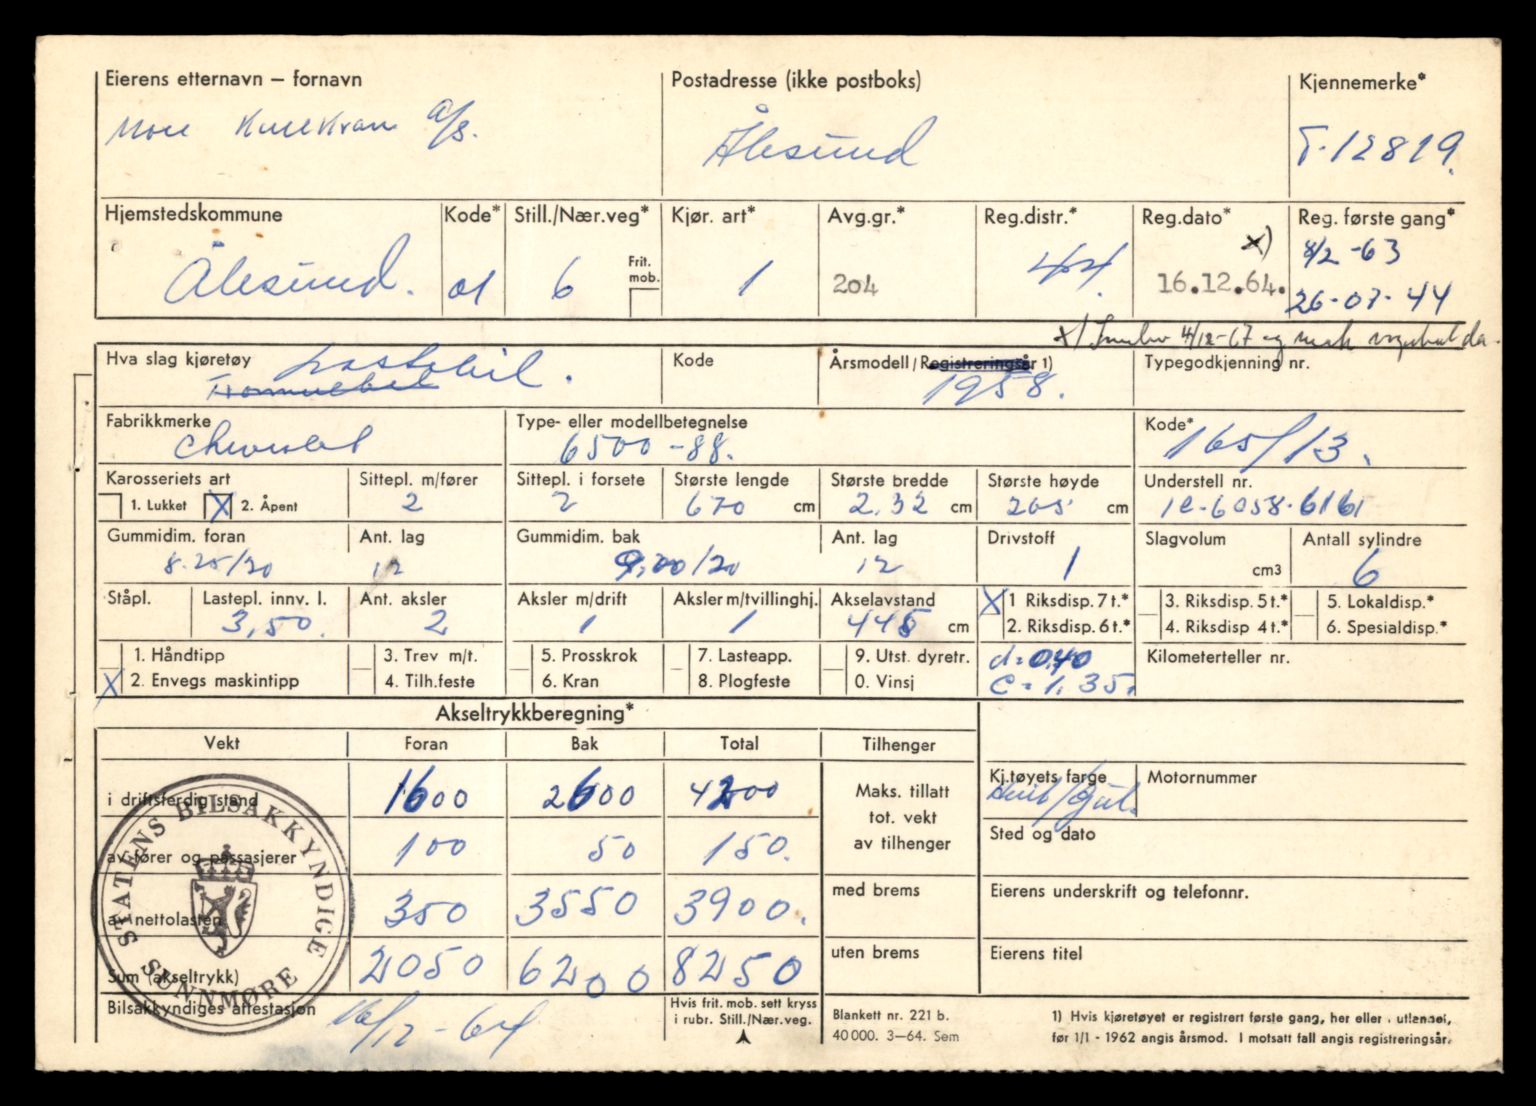 Eierens etternavn – fornavn Postadresse (ikke postboks) Kjennemerke*
a/s. Ålesund T-12819.
Hjemstedskommune Kode* Still./Nær.veg* Kjør. art* Avg.gr.* Reg.distr.* Reg.dato* Reg. første gang*
x) 4/2 -63
Ålesund. 01 6 Frit. mob. 1 204 44. 16.12.64. 26-07-44
x) 4/12-67 og
Hva slag kjøretøy Lastebil. Kode Årsmodell/Registreringsår 1) Typegodkjenning nr.
1958.
Fabrikkmerke Type- eller modellbetegnelse Kode*
Chevrolet 6500-88. 165/13.
Karosseriets art Sittepl. m/fører Sittepl. i forsete Største lengde Største bredde Største høyde Understell nr.
1. Lukket X 2. Åpent 2 2 670 cm 2.32 cm 205 cm 1e-6058-6161
Gummidim. foran Ant. lag Gummidim. bak Ant. lag Drivstoff Slagvolum Antall sylindre
8.25/20 12 9,00/20 12 1 cm3 6
Ståpl. Lastepl. innv. l. Ant. aksler Aksler m/drift Aksler m/tvillinghj. Akselavstand X 1 Riksdisp. 7 t.* 3. Riksdisp. 5 t.* 5. Lokaldisp.*
3,50. 2 1 1 445 cm 2. Riksdisp. 6 t.* 4. Riksdisp 4 t.* 6. Spesialdisp.*
1. Håndtipp 3. Trev m/t. 5. Prosskrok 7. Lasteapp. 9. Utst. dyretr. d=0,40 Kilometerteller nr.
X 2. Envegs maskintipp 4. Tilh.feste 6. Kran 8. Plogfeste 0. Vinsj c=1,35.
Akseltrykkberegning*
Vekt Foran Bak Total Tilhenger
i driftsferdig stand 1600 2600 4200 Maks. tillatt tot. vekt av tilhenger Kj.tøyets farge Motornummer
Hvit/Gul.
av fører og passasjerer 100 50 150. Sted og dato
av nettolasten 350 3550 3900. med brems Eierens underskrift og telefonnr.
Sum (akseltrykk) 2050 6200 8250 uten brems Eierens titel
Bilsakkyndiges attestasjon 16/12-64 Hvis frit. mob. sett kryss i rubr. Still./Nær.veg.
STATENS BILSAKKYNDIGE
SUNNMØRE
Blankett nr. 221 b.
40 000. 3–64. Sem
1) Hvis kjøretøyet er registrert første gang, her eller i utlandet,
før 1/1 - 1962 angis årsmod. I motsatt fall angis registreringsår.